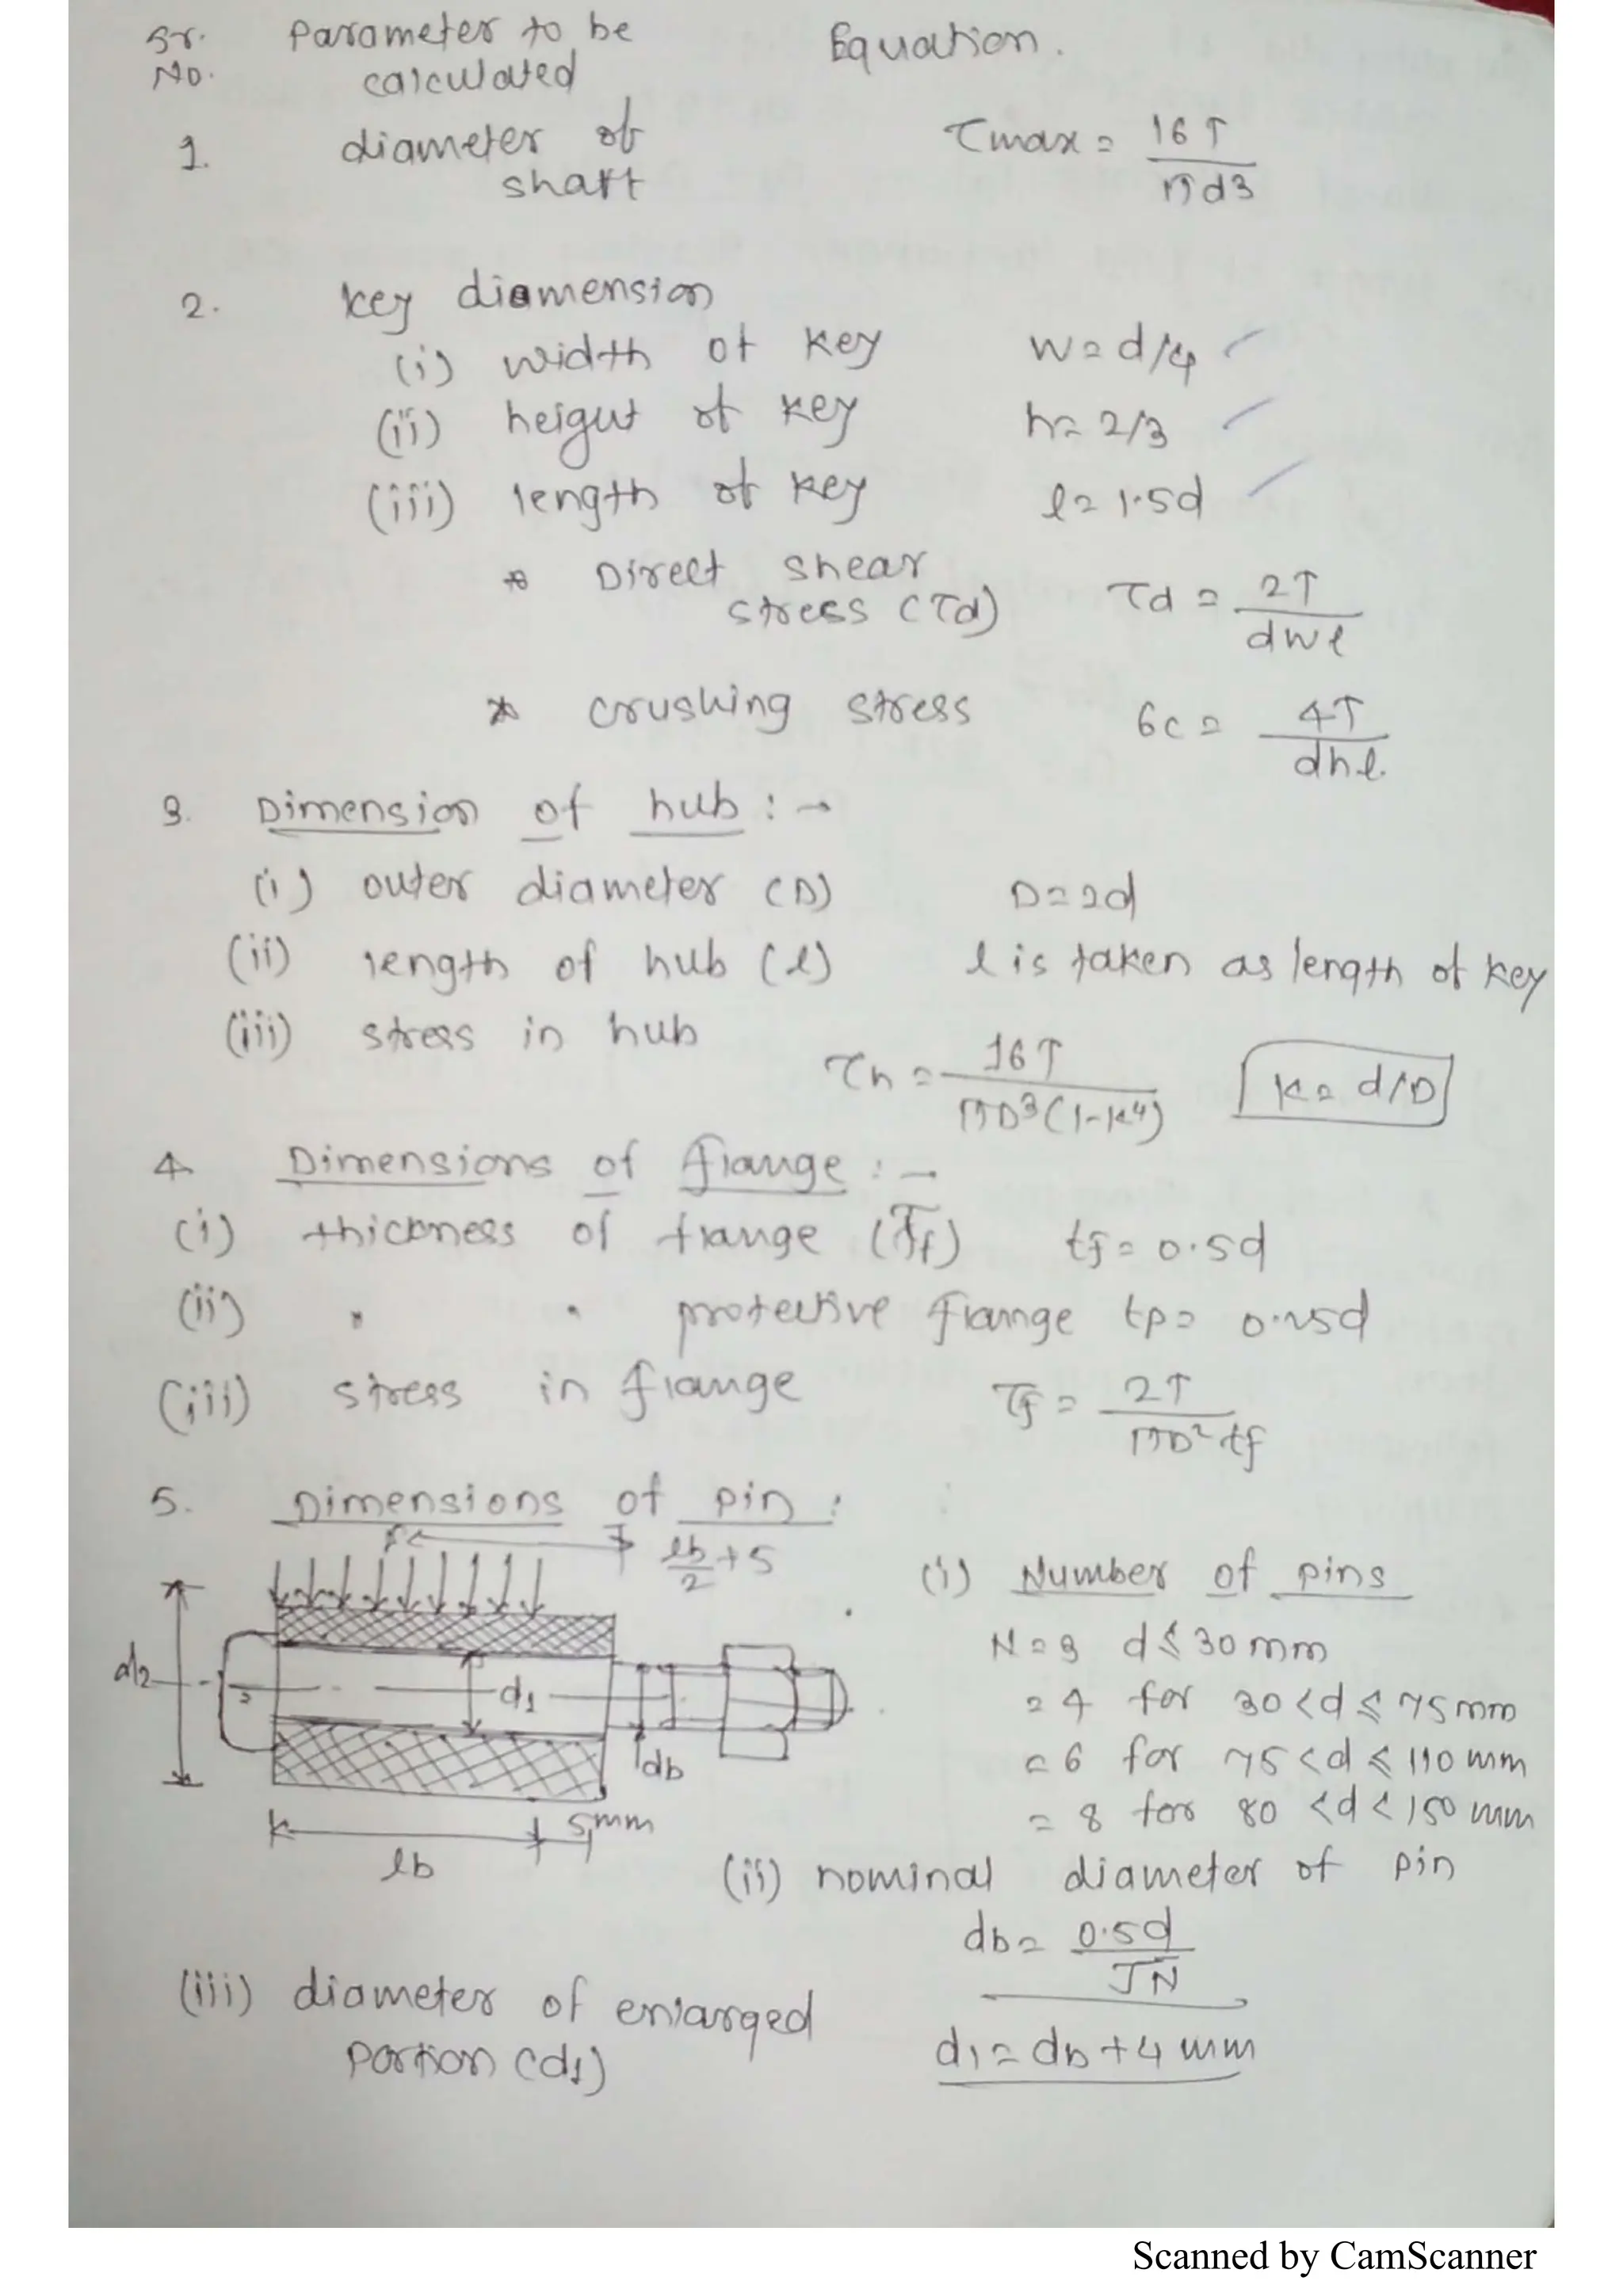 Sr. Parameter to be Equation.
No. calculated
1. diameter of τmax = 16T / πd3
shaft
2. key diamension
(i) width of key w = d/4
(ii) height of key h = 2/3
(iii) length of key l = 1.5d
* Direct shear
stress (τd) τd = 2T / dwl
* crushing stress σc = 4T / dhl.
3. Dimension of hub : →
(i) outer diameter (D) D = 2d
(ii) length of hub (l) l is taken as length of key
(iii) stress in hub
τh = 16T / πD³(1-k⁴) k = d/D
4 Dimensions of flange : →
(i) thickness of flange (Tf) tf = 0.5d
(ii) " " protective flange tp = 0.25d
(iii) stress in flange τf = 2T / πD² tf
5. Dimensions of pin :
lb/2 + 5
(i) Number of pins
N = 3 d ≤ 30 mm
d2 d1
= 4 for 30 < d ≤ 75 mm
db
= 6 for 75 < d ≤ 110 mm
5mm
= 8 for 80 < d < 150 mm
lb
(ii) nominal diameter of pin
db = 0.5d / √N
(iii) diameter of enlarged
portion (d1) d1 = db + 4 mm
Scanned by CamScanner